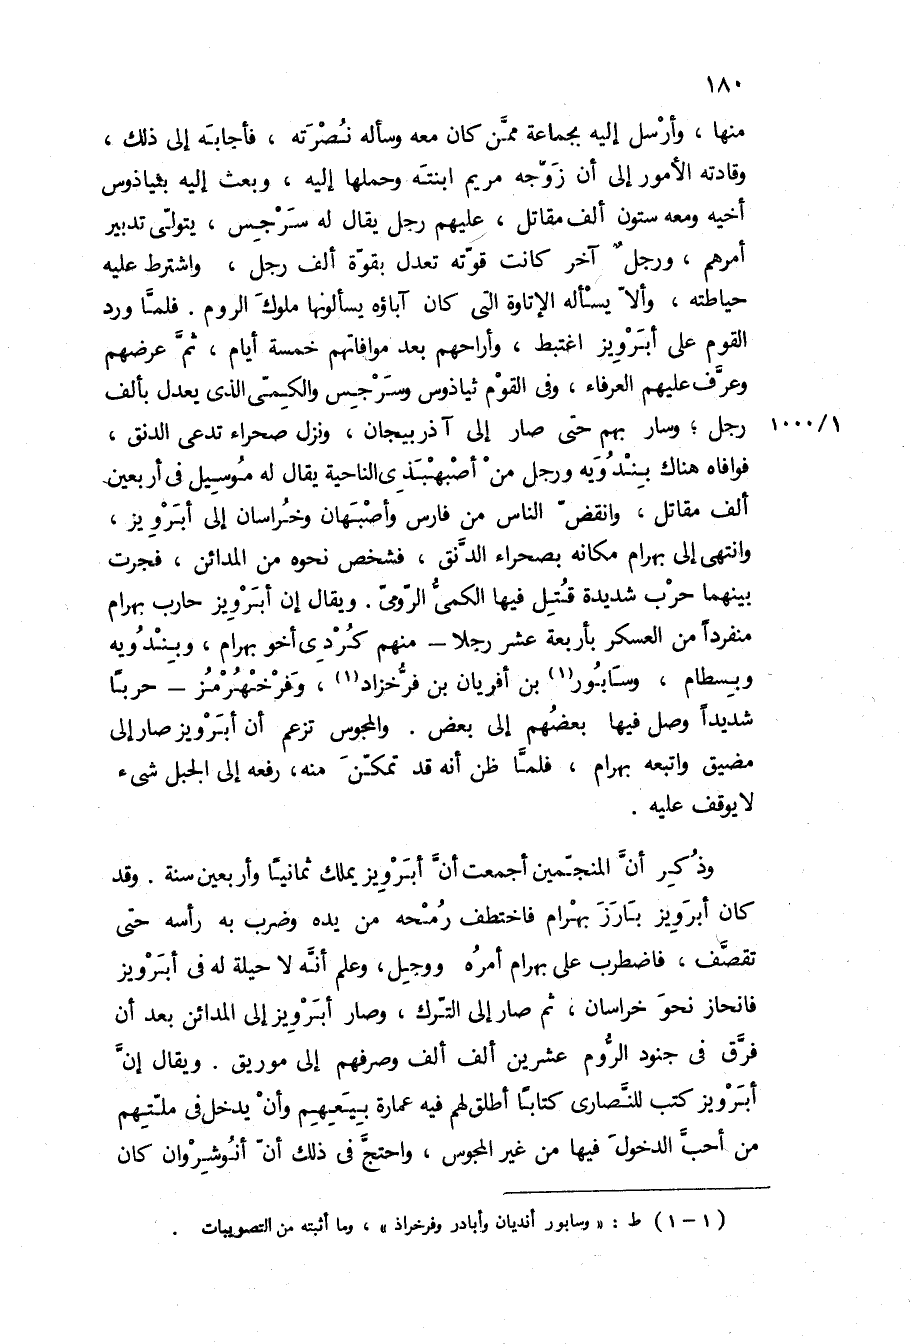 ١٨٠
منها ، وأرْسل إليه بجماعة ممَّن كان معه وسأله نُصْرَته ، فأجابَه إلى ذلك ،
وقادته الأمور إلى أن زَوّجه مريم ابنتَه وحملها إليه ، وبعث إليه بثياذوس
أخيه ومعه ستون ألف مقاتل ، عليهم رجل يقال له سَرْجِس ، يتولّى تدبير
أمرهم ، ورجلٌ آخر كانت قوّته تعدل بقوّة ألف رجل ، واشترط عليه
حياطته ، وألاّ يسْأله الإتاوة التى كان آباؤه يسألونها ملوكَ الروم . فلمَّا ورد
القوم على أبَرْوِيز اغتبط ، وأراحهم بعد موافاتهم خمسة أيام ، ثمَّ عرضهم
وعرَّف عليهم العرفاء ، وفى القوْم ثياذوس وسَرْجِس والكمىّ الذى يعدل بألف
رجل ؛ وسار بهم حتى صار إلى آذربيجان ، ونزل صحراء تدعى الدنق ، ١٠٠٠/١
فوافاه هناك بِنْدُويَه ورجل منْ أصْبهْبَذِى الناحية يقال له مُوسِيل فى أربعين
ألف مقاتل ، وانقضّ الناس من فارس وأصْبَهان وخُراسان إلى أبَرْوِيز ،
وانتهى إلى بهرام مكانه بصحراء الدَّنق ، فشخص نحوه من المدائن ، فجرت
بينهما حرْب شديدة قُتِل فيها الكمىُّ الرّومىّ . ويقال إن أبَرْوِيز حارب بهرام
منفرداً من العسكر بأربعة عشر رجلا – منهم كُرْدِى أخو بهرام ، وبِنْدُويه
وبِسطام ، وسَابُور(١) بن أفريان بن فرُّخزاد(١) ، وَفَرْخهُرْمُز – حربًا
شديداً وصل فيها بعضُهم إلى بعض . والمجوس تزعم أن أبَرْوِيز صار إلى
مضيق واتبعه بهرام ، فلمَّا ظن أنه قد تمكّنَ منه، رفعه إلى الجبل شىء
لا يوقف عليه .
وذُكِر أنَّ المنجّمين أجمعت أنَّ أبَرْوِيز يملك ثمانيًا وأربعين سنة . وقد
كان أبرَوِيز بَارَزَ بهْرام فاختطف رُمْحه من يده وضرب به رأسه حتى
تقصَّف ، فاضطرب على بهرام أمرُه ووجِل، وعلم أنَّه لا حيلة له فى أبَرْوِيز
فانحاز نحوَ خراسان ، ثم صار إلى التّرك ، وصار أبَرْوِيز إلى المدائن بعد أن
فرَّق فى جنود الرُّوم عشرين ألف ألف وصرفهم إلى موريق . ويقال إنَّ
أبَرْوِيز كتب للنَّصارى كتابًا أطلق لهم فيه عمارة بِيَعِهم وأنْ يدخل فى ملّتِهم
من أحبَّ الدخولَ فيها من غير المجوس ، واحتجَّ فى ذلك أنّ أنُوشِرْوان كان
(١ – ١) ط : « وسابور أنديان وأبادر وفرخراذ » ، وما أثبته من التصويبات .